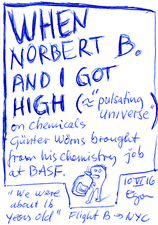 WHEN
NORBERT B.
AND I GOT
HIGH (≈ "pulsating
universe")
on chemicals
Günter Wörns brought
from his chemistry job
at BASF.
"We were
about 16
years old"
10 VI 16
Flight B → NYC